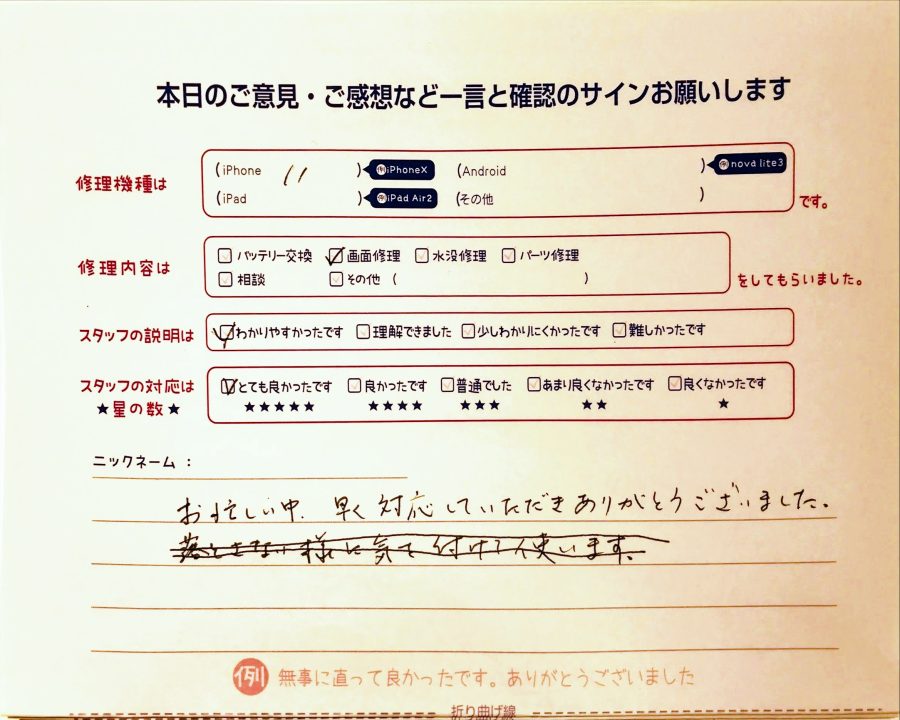 本日のご意見・ご感想など一言と確認のサインお願いします
修理機種は (iPhone 11 ) 例iPhoneX (Android ) 例nova lite3
(iPad ) 例iPad Air2 (その他 ) です。
修理内容は バッテリー交換 画面修理 水没修理 パーツ修理
相談 その他 ( ) をしてもらいました。
スタッフの説明は わかりやすかったです 理解できました 少しわかりにくかったです 難しかったです
スタッフの対応は とても良かったです 良かったです 普通でした あまり良くなかったです 良くなかったです
★星の数★ ★★★★★ ★★★★ ★★★ ★★ ★
ニックネーム：
お忙しい中、早く対応していただきありがとうございました。
落とさない様に気を付けて使います。
例 無事に直って良かったです。ありがとうございました
折り曲げ線